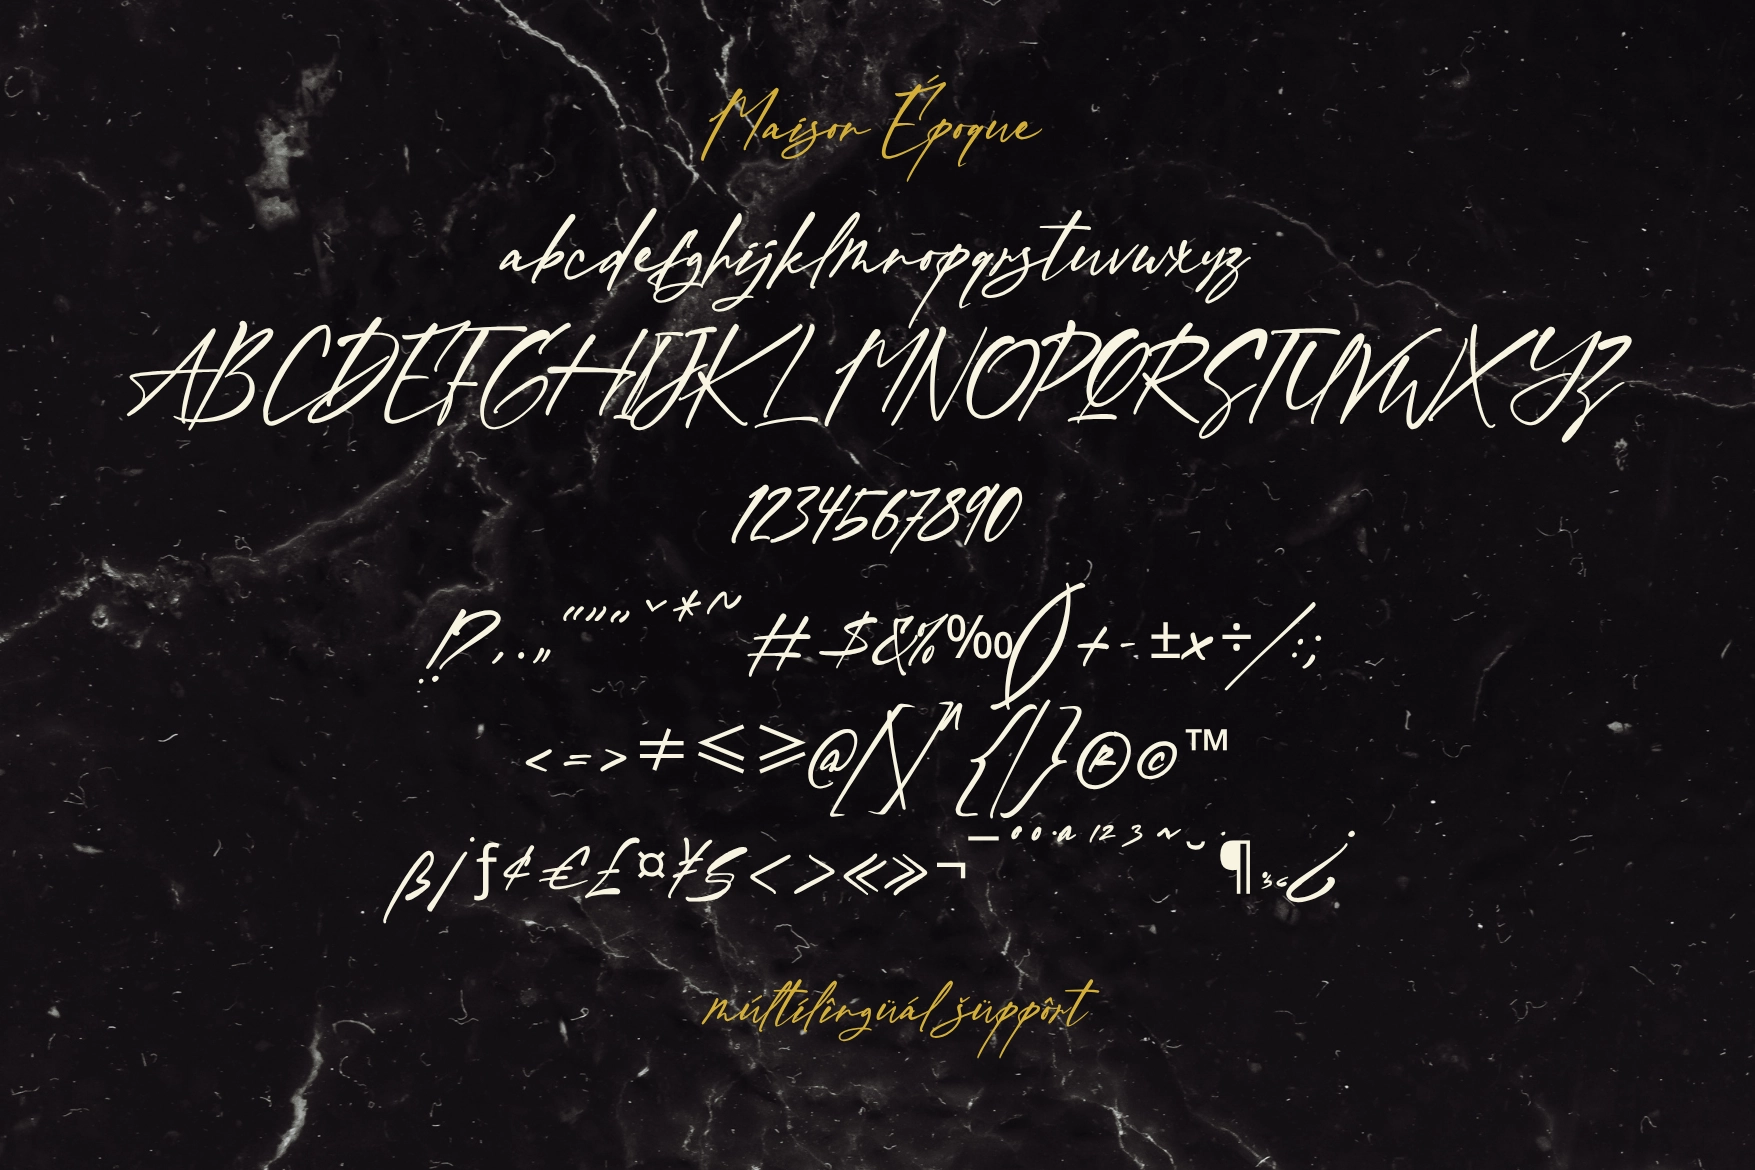 Maison Époque
abcdefghijklmnopqrstuvwxyz
ABCDEFGHIJKLMNOPQRSTUVWXYZ
1234567890
!?,.„“”"ˇ*~#$&%‰()+-±×÷/:;
<=>≠≤≥@[\]^{|}®©™
ßƒ¢€£¤¥§‹›«»¬¯°º·ª¹²³~˘˙¶¿
múltílîngüál šüppôrt